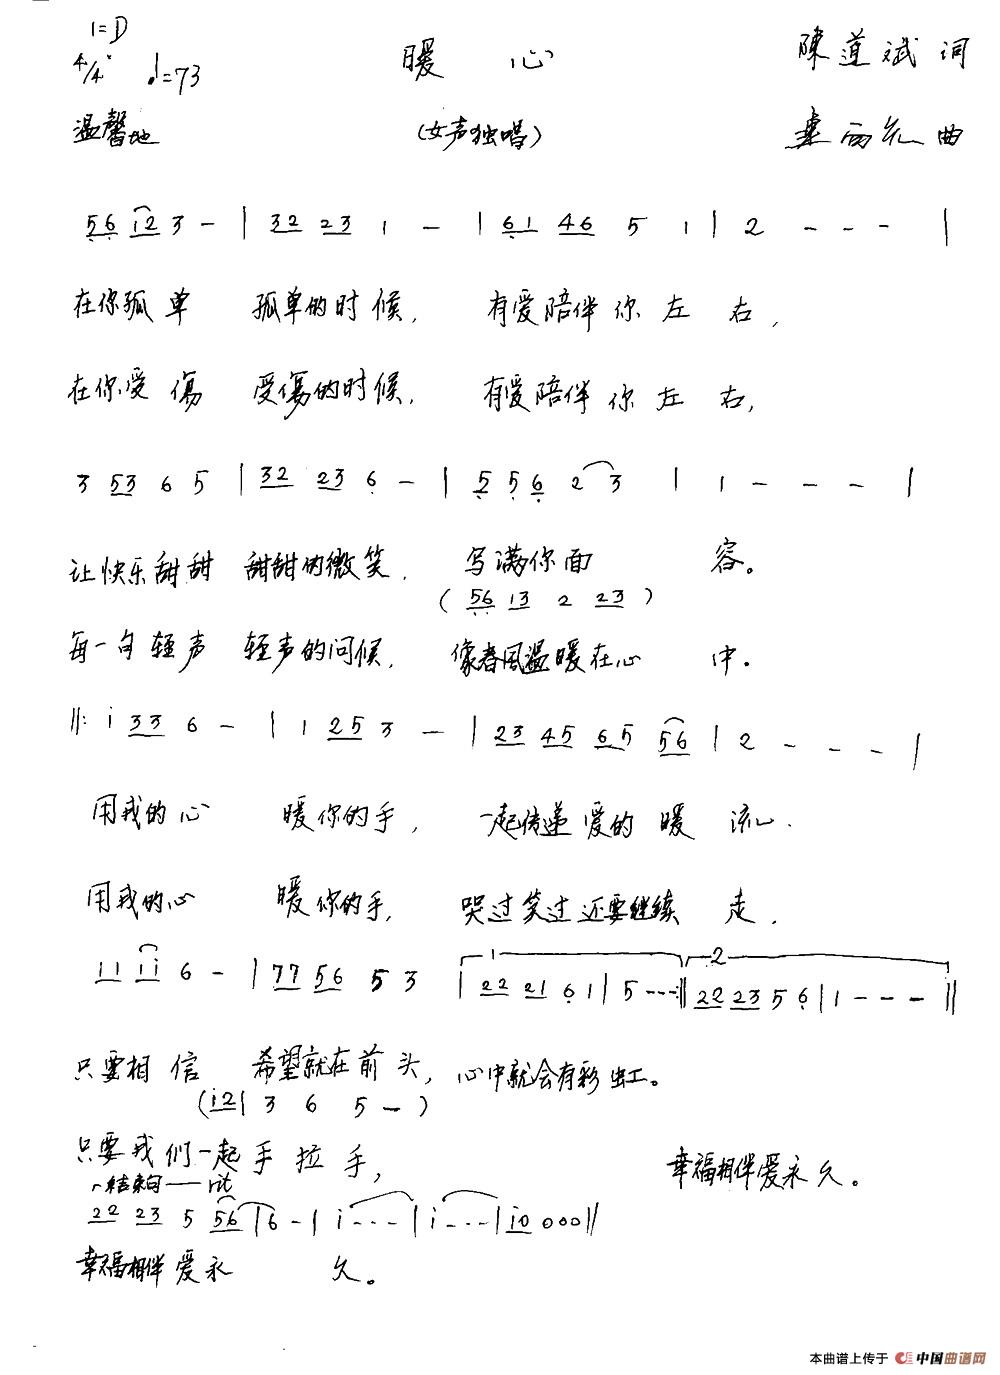 1=D
4/4 ♩=73
暖 心
陳道斌 词
温馨地
(女声独唱)
曲
56 12 3 - | 32 23 1 - | 61 46 5 1 | 2 - - - |
在你孤单 孤单的时候, 有爱陪伴你左右,
在你受傷 受傷的时候, 有爱陪伴你左右,
3 53 6 5 | 32 23 6 - | 5 5 6 2 3 | 1 - - - |
让快乐甜甜 甜甜的微笑, 写满你面容。
(56 13 2 23)
每一句轻声 轻声的问候, 像春风温暖在心中.
||: i 33 6 - | 1 25 3 - | 23 45 65 56 | 2 - - - |
用我的心 暖你的手, 一起传递爱的暖流.
用我的心 暖你的手, 哭过笑过还要继续走,
11 ii 6 - | 77 56 5 3 | 1 22 21 6 1 | 5 - - - :|| 2 22 23 5 6 | 1 - - - ||
只要相信 希望就在前头, 心中就会有彩虹。
(i2 | 3 6 5 -)
只要我们一起手拉手, 幸福相伴爱永久。
结束句 —— rit
22 23 5 56 | 6 - | i - - - | i - - - | i0 0 0 0 ||
幸福相伴爱永久。
本曲谱上传于 中国曲谱网